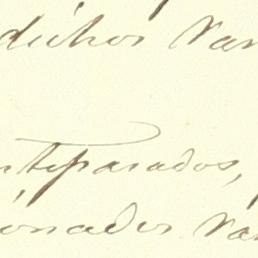 dichos var
nteparados,
ionados va